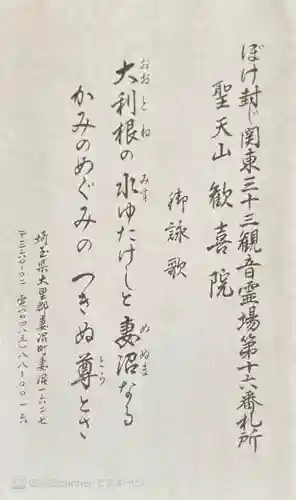 ぼけ封じ関東三十三観音霊場第十六番札所
聖天山 歓喜院
御詠歌
大利根の水ゆたけしと妻沼なる
おおとね みず めぬま
かみのめぐみの つきぬ尊とさ
とう
埼玉県大里郡妻沼町妻沼一六二七
〒三六〇-〇二 電(〇四八五)八八-〇〇一六
CamScanner でスキャン